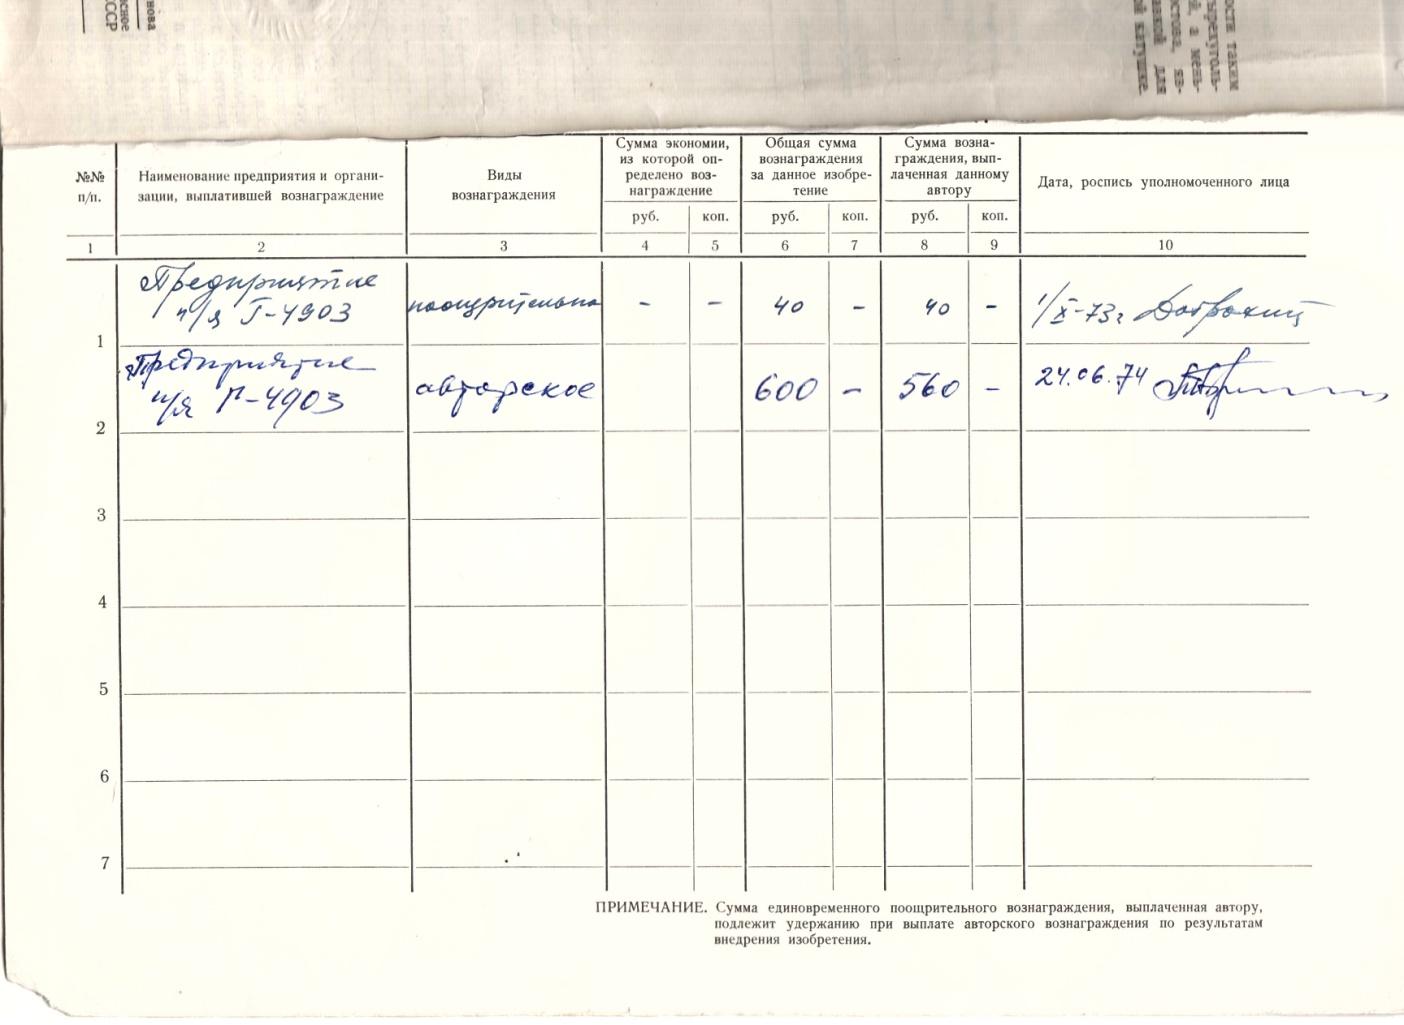 нова
сное
СССР
ости таким
тырехуголь-
й, а мень-
остова, яв-
аткой для
ой катушке.
№№ п/п.
Наименование предприятия и органи-
зации, выплатившей вознаграждение
Виды
вознаграждения
Сумма экономии,
из которой оп-
ределено воз-
награждение
руб. коп.
Общая сумма
вознаграждения
за данное изобре-
тение
руб. коп.
Сумма возна-
граждения, вып-
лаченная данному
автору
руб. коп.
Дата, роспись уполномоченного лица
1 2 3 4 5 6 7 8 9 10
Предприятие
п/я Г-4903 поощрительно - - 40 - 40 - 1/X-73г
1
Предприятие
п/я Г-4903 авторское 600 - 560 - 24.06.74
2
3
4
5
6
7
ПРИМЕЧАНИЕ. Сумма единовременного поощрительного вознаграждения, выплаченная автору,
подлежит удержанию при выплате авторского вознаграждения по результатам
внедрения изобретения.